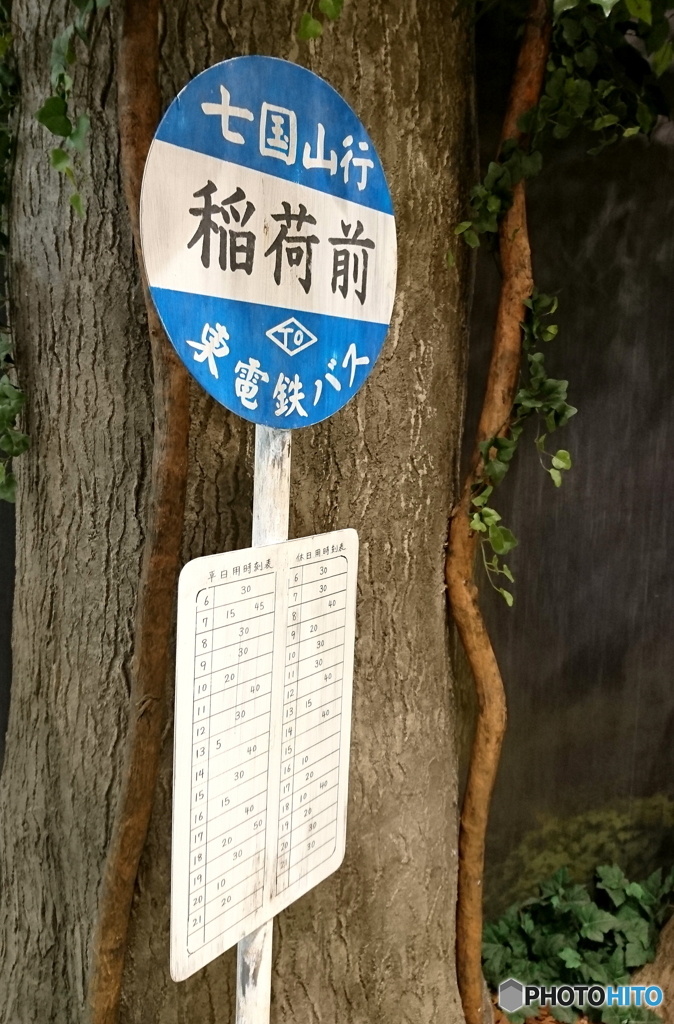 七国山行
稲荷前
TO
東電鉄バス
平日用時刻表
6 30
7 15 45
8 30
9 30
10 20
11 40
12 30
13 5 40
14 30
15
16 15 40
17 50
18 20
19 30
20 10
21 20
休日用時刻表
6 30
7 30
8 40
9 20
10 30
11 30
12 40
13 15
14 40
15
16 10
17 20
18 10 40
19 20
20 30
21 30
PHOTOHITO